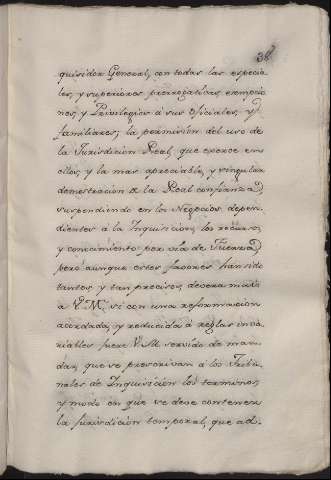 38
quisidor General, con todas las especia-
les, y superiores prerrogativas exempcio
nes, y Privilegios á sus oficiales, y
familiares; la permision del uso de
la Jurisdicion Real, que exerce en
ellos, y la mas apreciable, y singular
demostracion de la Real confianza
suspendiendo en los Negocios depen-
dientes á la Inquisicion, los recursos
y conocimiento por via de Fuerza;
pero aunque estos favores han sido
tantos y tan precisos, devera mas
a V.M. si con una reformacion
acordada, y reducida á reglas inva-
riables fuere V.M. servido de man-
dar, que se prescrivan á los Tribu-
nales de Inquisicion los terminos,
y modo con que se deve contener
la jurisdicion temporal, que ad-